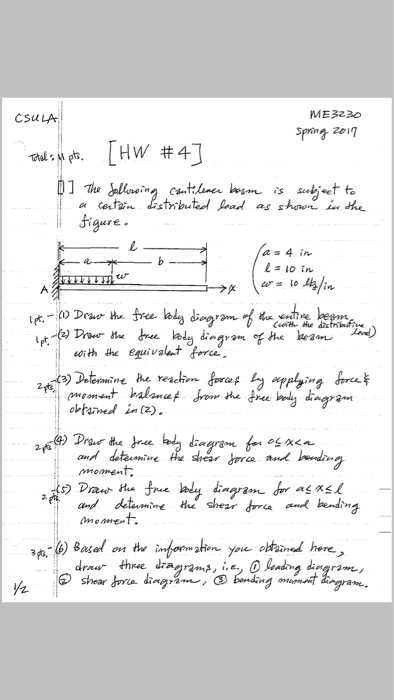 CSULA
ME3230
Spring 2017
Total: 11 pts.
[HW #4]
1] The following cantilever beam is subject to
a certain distributed load as shown in the
figure.
l
a
b
w
A
x
a = 4 in
l = 10 in
w = 10 lbf/in
1 pt. - (1) Draw the free body diagram of the entire beam
(with the distributive load)
1 pt. - (2) Draw the free body diagram of the beam
with the equivalent force.
2 pts. - (3) Determine the reaction forces by applying force &
moment balances from the free body diagram
obtained in (2).
2 pts - (4) Draw the free body diagram for 0≤x<a
and determine the shear force and bending
moment.
2 pts - (5) Draw the free body diagram for a≤x≤l
and determine the shear force and bending
moment.
3 pts. - (6) Based on the information you obtained here,
draw three diagrams, i.e., ① loading diagram,
② shear force diagram, ③ bending moment diagram.
1/2